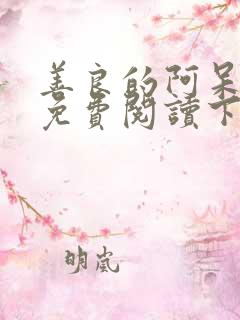 善良的阿呆
免費閱讀下
明嵐